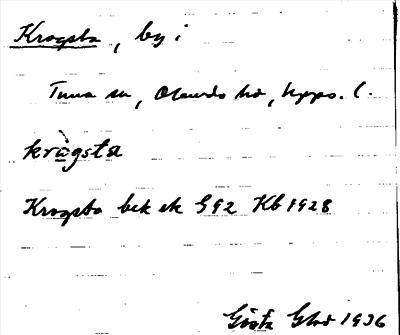 Krogsta, by i
Tuna sn, Olands hd, Upps. l.
kràgsta
Krogsta bek ek G92 Kb 1928
Gösta 1936